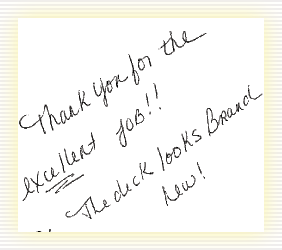 Thank you for the
excellent JOB!!
The deck looks Brand
new!